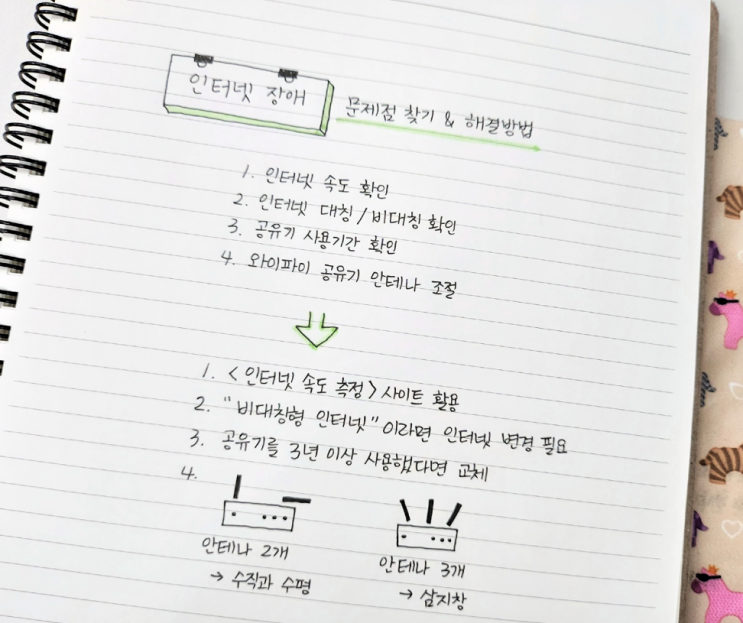 인터넷 장애
문제점 찾기 & 해결방법
1. 인터넷 속도 확인
2. 인터넷 대칭 / 비대칭 확인
3. 공유기 사용기간 확인
4. 와이파이 공유기 안테나 조절
1. <인터넷 속도 측정> 사이트 활용
2. "비대칭형 인터넷"이라면 인터넷 변경 필요
3. 공유기를 3년 이상 사용했다면 교체
4.
안테나 2개
→ 수직과 수평
안테나 3개
→ 삼지창